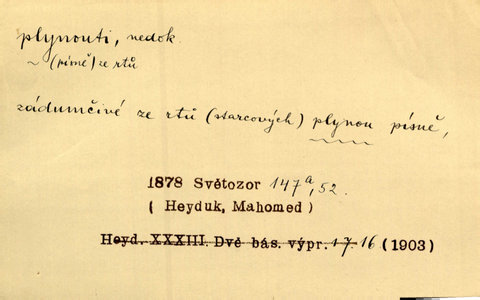 plynouti, nedok.
~ (písně) ze rtů
zádumčivé ze rtů (starcových) plynou písně,
1878 Světozor 147a, 52.
( Heyduk, Mahomed )
Heyd. XXXIII. Dvě bás. výpr. 17. 16 (1903)